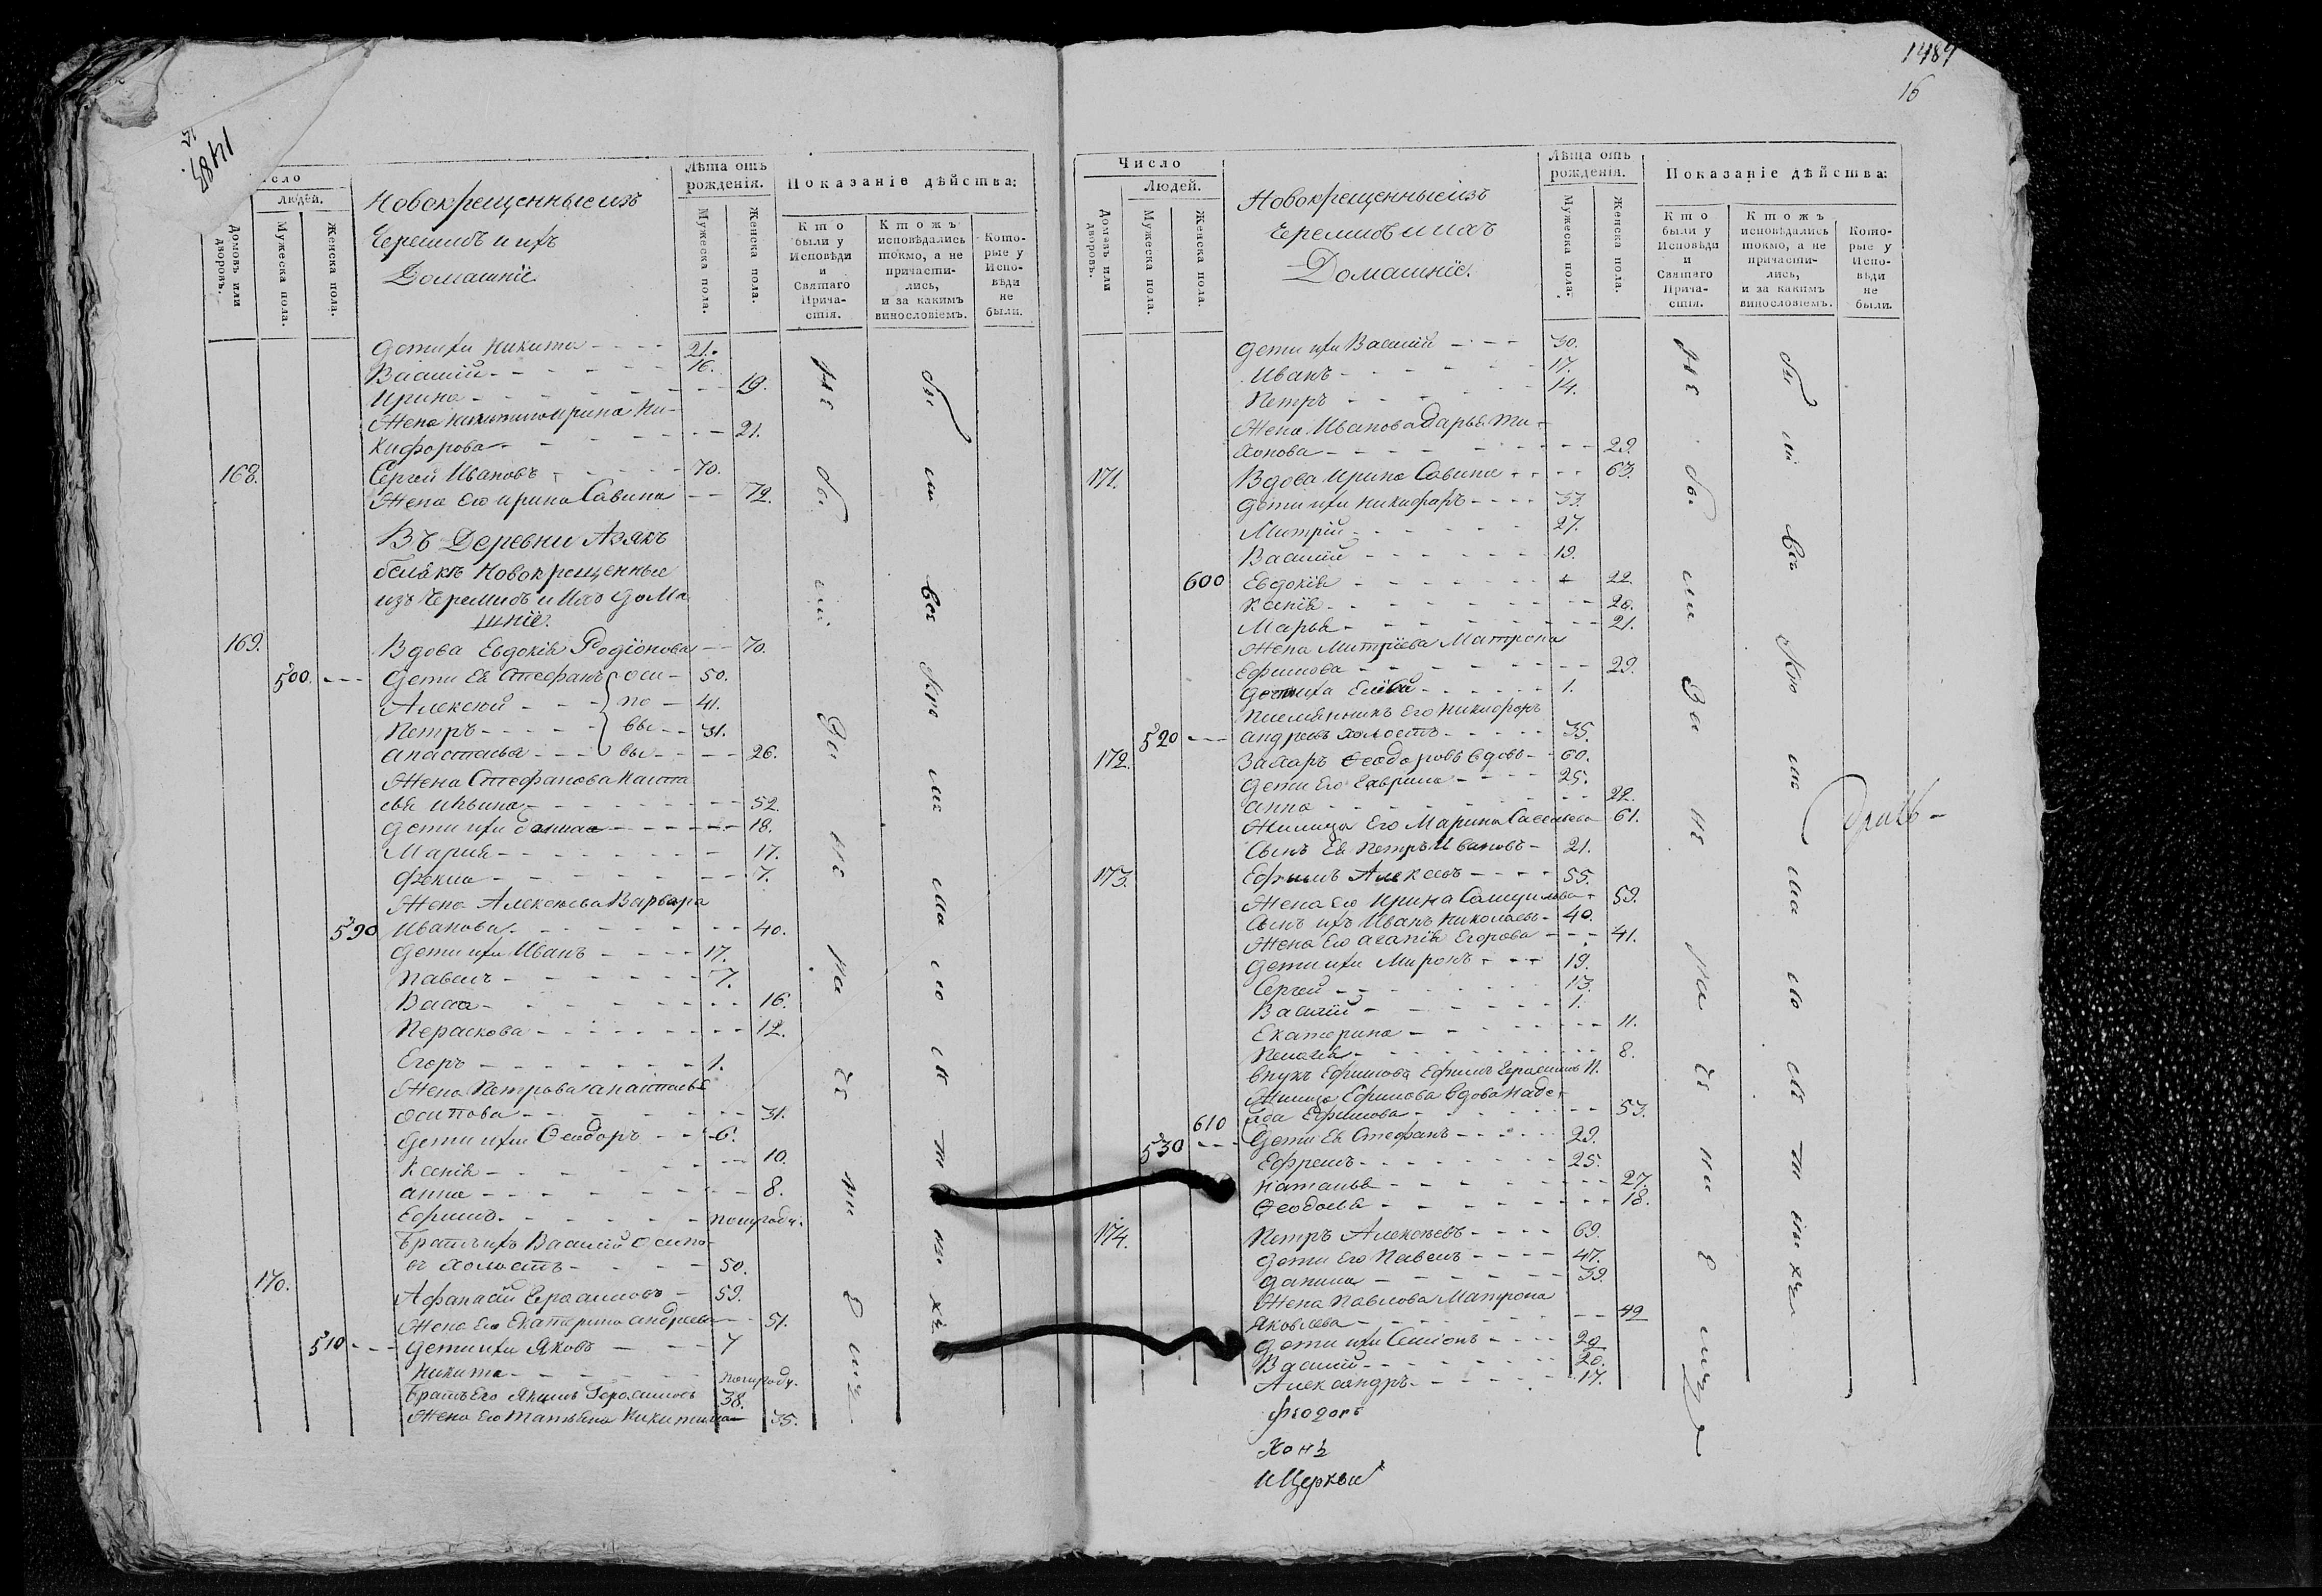 1483.
15
Число
Людей.
Домовъ или дворовъ.
Мужеска пола.
Женска пола.
Новокрещенные изъ
Черемисъ и ихъ
Домашніе
Лѣта отъ рожденія.
Мужеска пола.
Женска пола.
Показаніе дѣйства:
Кто были у Исповѣди и Святаго Прича-стія.
Ктожъ исповѣдались токмо, а не причасти-лись, и за какимъ винословіемъ.
Кото-рые у Испо-вѣди не были.
Дети ихъ Никита - - - 21.
Василій - - - 16.
Ирина - - - 19.
Жена Никитина Ирина Ни-
кифорова - - - 21.
168. Сергей Ивановъ - - - 70.
Жена Его Ирина Савина - - 72.
Въ Деревни Азякъ
белякъ Новокрещенные
изъ Черемисъ и Ихъ дома
шніе.
169. Вдова Евдокія Родіонова - - 70.
500. - - - Дети Ея Стефанъ оси - 50.
Алексей - - - по - 41.
Петръ - - - вы - - 31.
Анастасья - - - вы - - - 26.
Жена Стефанова Наста
сья Ильина - - - 52.
Дети ихъ - - - 18.
Мария - - - 17.
Фекла - - - 7.
Жена Алексеева Варвара
590 Иванова - - - 40.
Дети ихъ Иванъ - - - 17.
Павелъ - - - 7.
Васса - - - 16.
Пераскова - - - 12.
Егоръ - - - 1.
Жена Петрова Анастасья
Осипова - - - 31.
Дети ихъ Феодоръ - - 6.
Ксенія - - - 10.
Анна - - - 8.
Ефимъ - - - полугоду.
Братъ ихъ Василій Осипо-
въ холостъ - - - 50.
170. Афанасій Герасимовъ - 59.
Жена Его Екатерина Андреева - - 51.
510 - - - Дети ихъ Яковъ - - - 7
Никита - - - полугоду.
Братъ Его Якимъ Герасимовъ 38.
Жена Его Татьяна Никитина 35.
1484
16
Число
Людей.
Домовъ или дворовъ.
Мужеска пола.
Женска пола.
Новокрещенные изъ
Черемисъ и ихъ
Домашніе.
Лѣта отъ рожденія.
Мужеска пола.
Женска пола.
Показаніе дѣйства:
Кто были у Исповѣди и Святаго Прича-стія.
Ктожъ исповѣдались токмо, а не причасти-лись, и за какимъ винословіемъ.
Кото-рые у Испо-вѣди не были.
Дети ихъ Василій - - - 30.
Иванъ - - - 17.
Петръ - - - 14.
Жена Иванова Дарья Ти-
хонова - - - 29.
171. Вдова Ирина Савина - - - 63.
Дети ихъ Никифоръ - - - 33.
Митрій - - - 27.
Василій - - - 19.
600 Евдокія - - - 22.
Ксенія - - - 20.
Марья - - - 21.
Жена Митріева Матрона
Ефимова - - - 29.
- - - 1.
Племянникъ Его Никифоръ
520 - - - Андреевъ холостъ - - - 35.
172. Захаръ Феодоровъ вдовъ - - 60.
Дети Его Гаврила - - - 25.
Анна - - - 22.
Жилица Его Марина Савельева 61.
Сынъ Ея Петръ Ивановъ - 21.
173. Ефимъ Алексеевъ - - - 55.
Жена Его Ирина Самуилова - 59.
Сынъ ихъ Иванъ Николаевъ - 40.
Жена Его Агапія Егорова - - - 41.
Дети ихъ Миронъ - - - 19.
Сергей - - - 13.
Василій - - - 1.
Екатерина - - - 11.
Пелагея - - - 8.
Внукъ Ефимова Ефимъ Герасимовъ 11.
Жилица Ефимова вдова Наде-
610 жда Ефимова - - - 53.
530 - - - Дети Ея Стефанъ - - - 29.
Ефремъ - - - 25.
Наталья - - - 27.
Феодосья - - - 18.
174. Петръ Алексеевъ - - - 69.
Дети Его Павелъ - - - 47.
Данила - - - 39.
Жена Павлова Матрона
Яковлева - - - 49
Дети ихъ Симіонъ - - - 29
Василій - - - 20.
Александръ - - - 17.
Феодоръ
Конъ
и Церкви